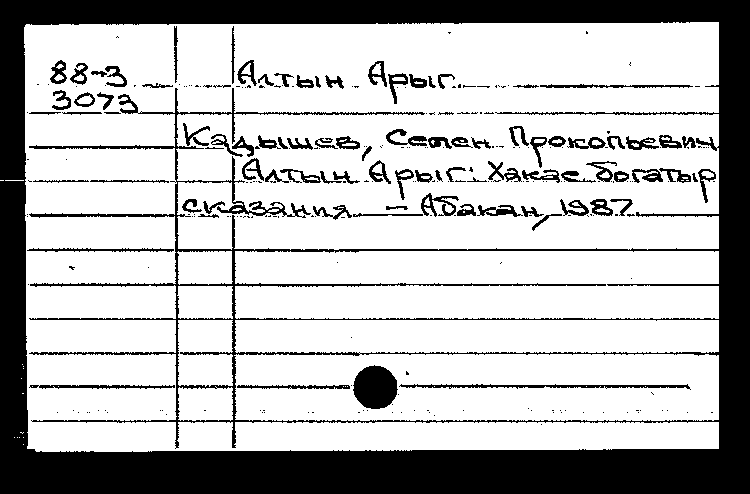 88-3 Алтын Арыг.
3073
Кадышев, Семен Прокопьевич
Алтын Арыг: Хакас богатыр
сказания – Абакан, 1987.